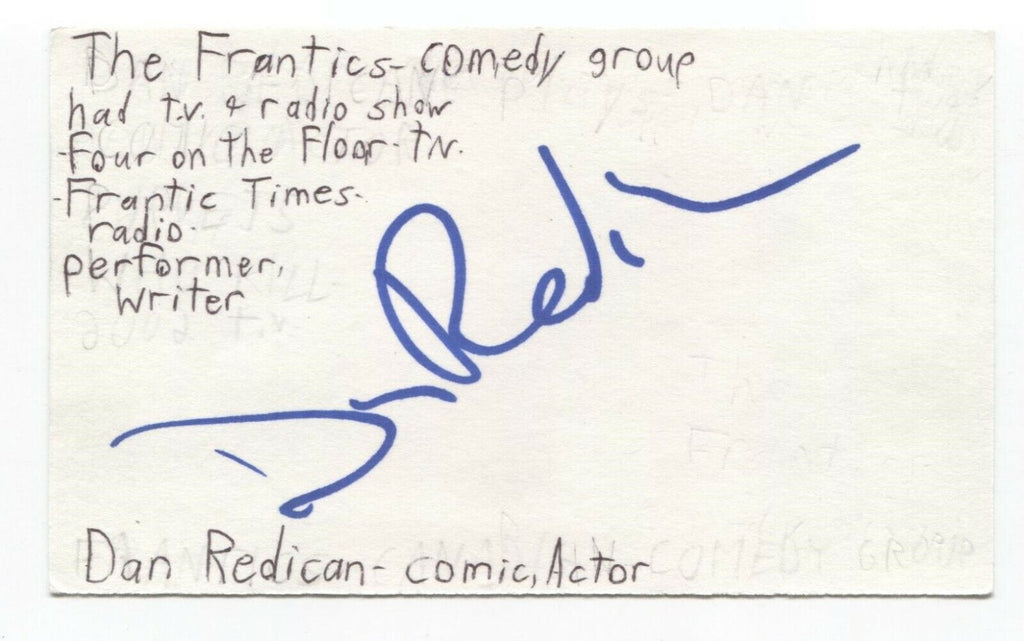 The Frantics - comedy group
had t.v. & radio show
- Four on the Floor - t.v.
- Frantic Times -
radio -
performer,
writer
Dan Redican
Dan Redican - comic, Actor